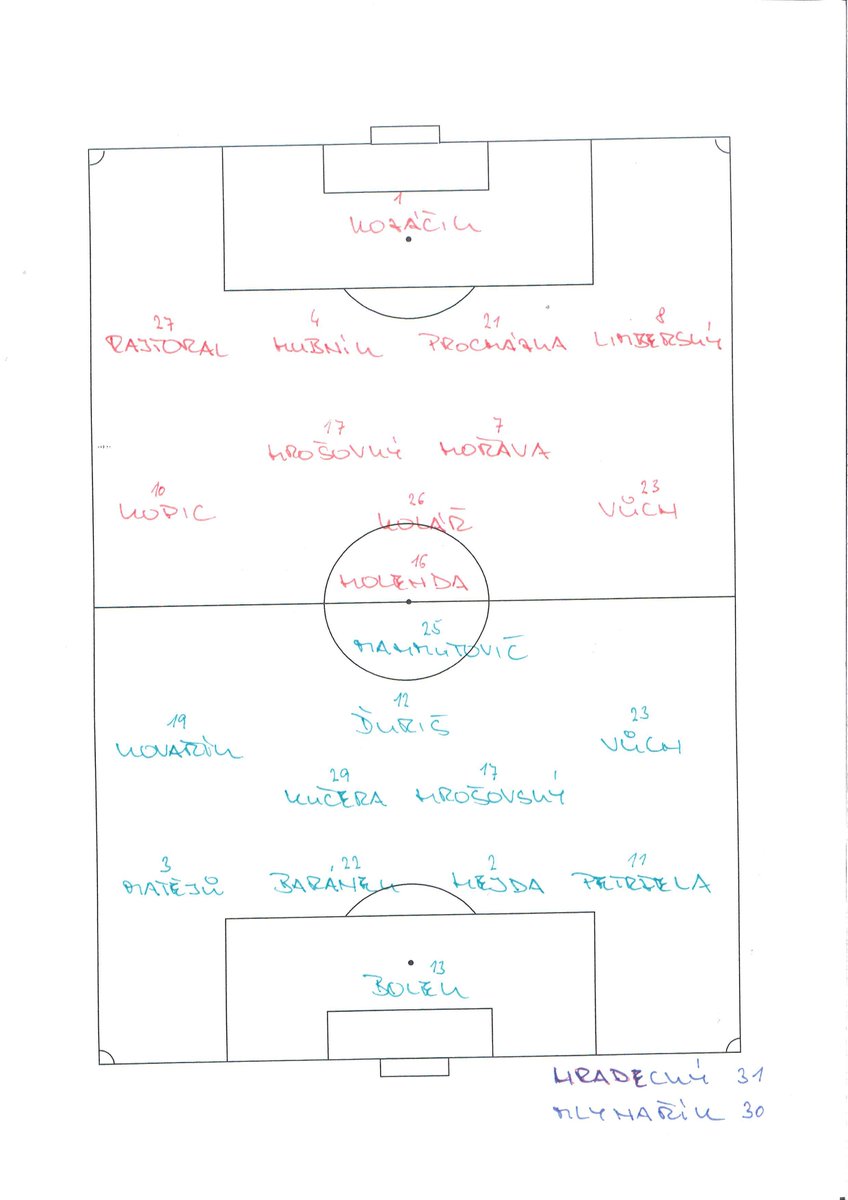 1
KOZÁČIK
27 4 21 8
RAJTORAL HUBNÍK PROCHÁZKA LIMBERSKÝ
17 7
HROŠOVKÝ HOŘAVA
10 26 23
KOPIC KOLÁŘ VŮCH
16
HOLENDA
25
MAHMUTOVIČ
19 12 23
KOVAŘÍK ĎURIŠ VŮCH
29 17
KUČERA HROŠOVSKÝ
3 22 2 11
MATĚJŮ BARÁNEK HEJDA PETRŽELA
13
BOLEK
HRADECKÝ 31
MLYNAŘÍK 30